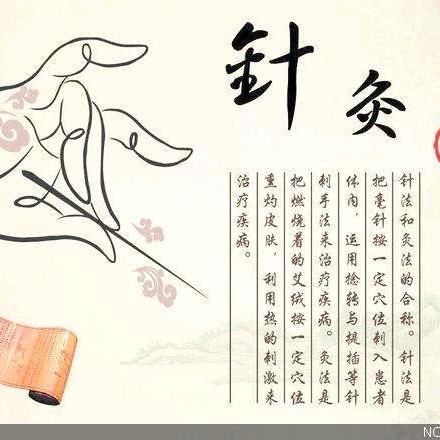 針灸
针法和灸法的合称。针法是
把毫针按一定穴位刺入患者
体内，运用捻转与提插等针
刺手法来治疗疾病。灸法是
把燃烧着的艾绒按一定穴位
熏灼皮肤，利用热的刺激来
治疗疾病。